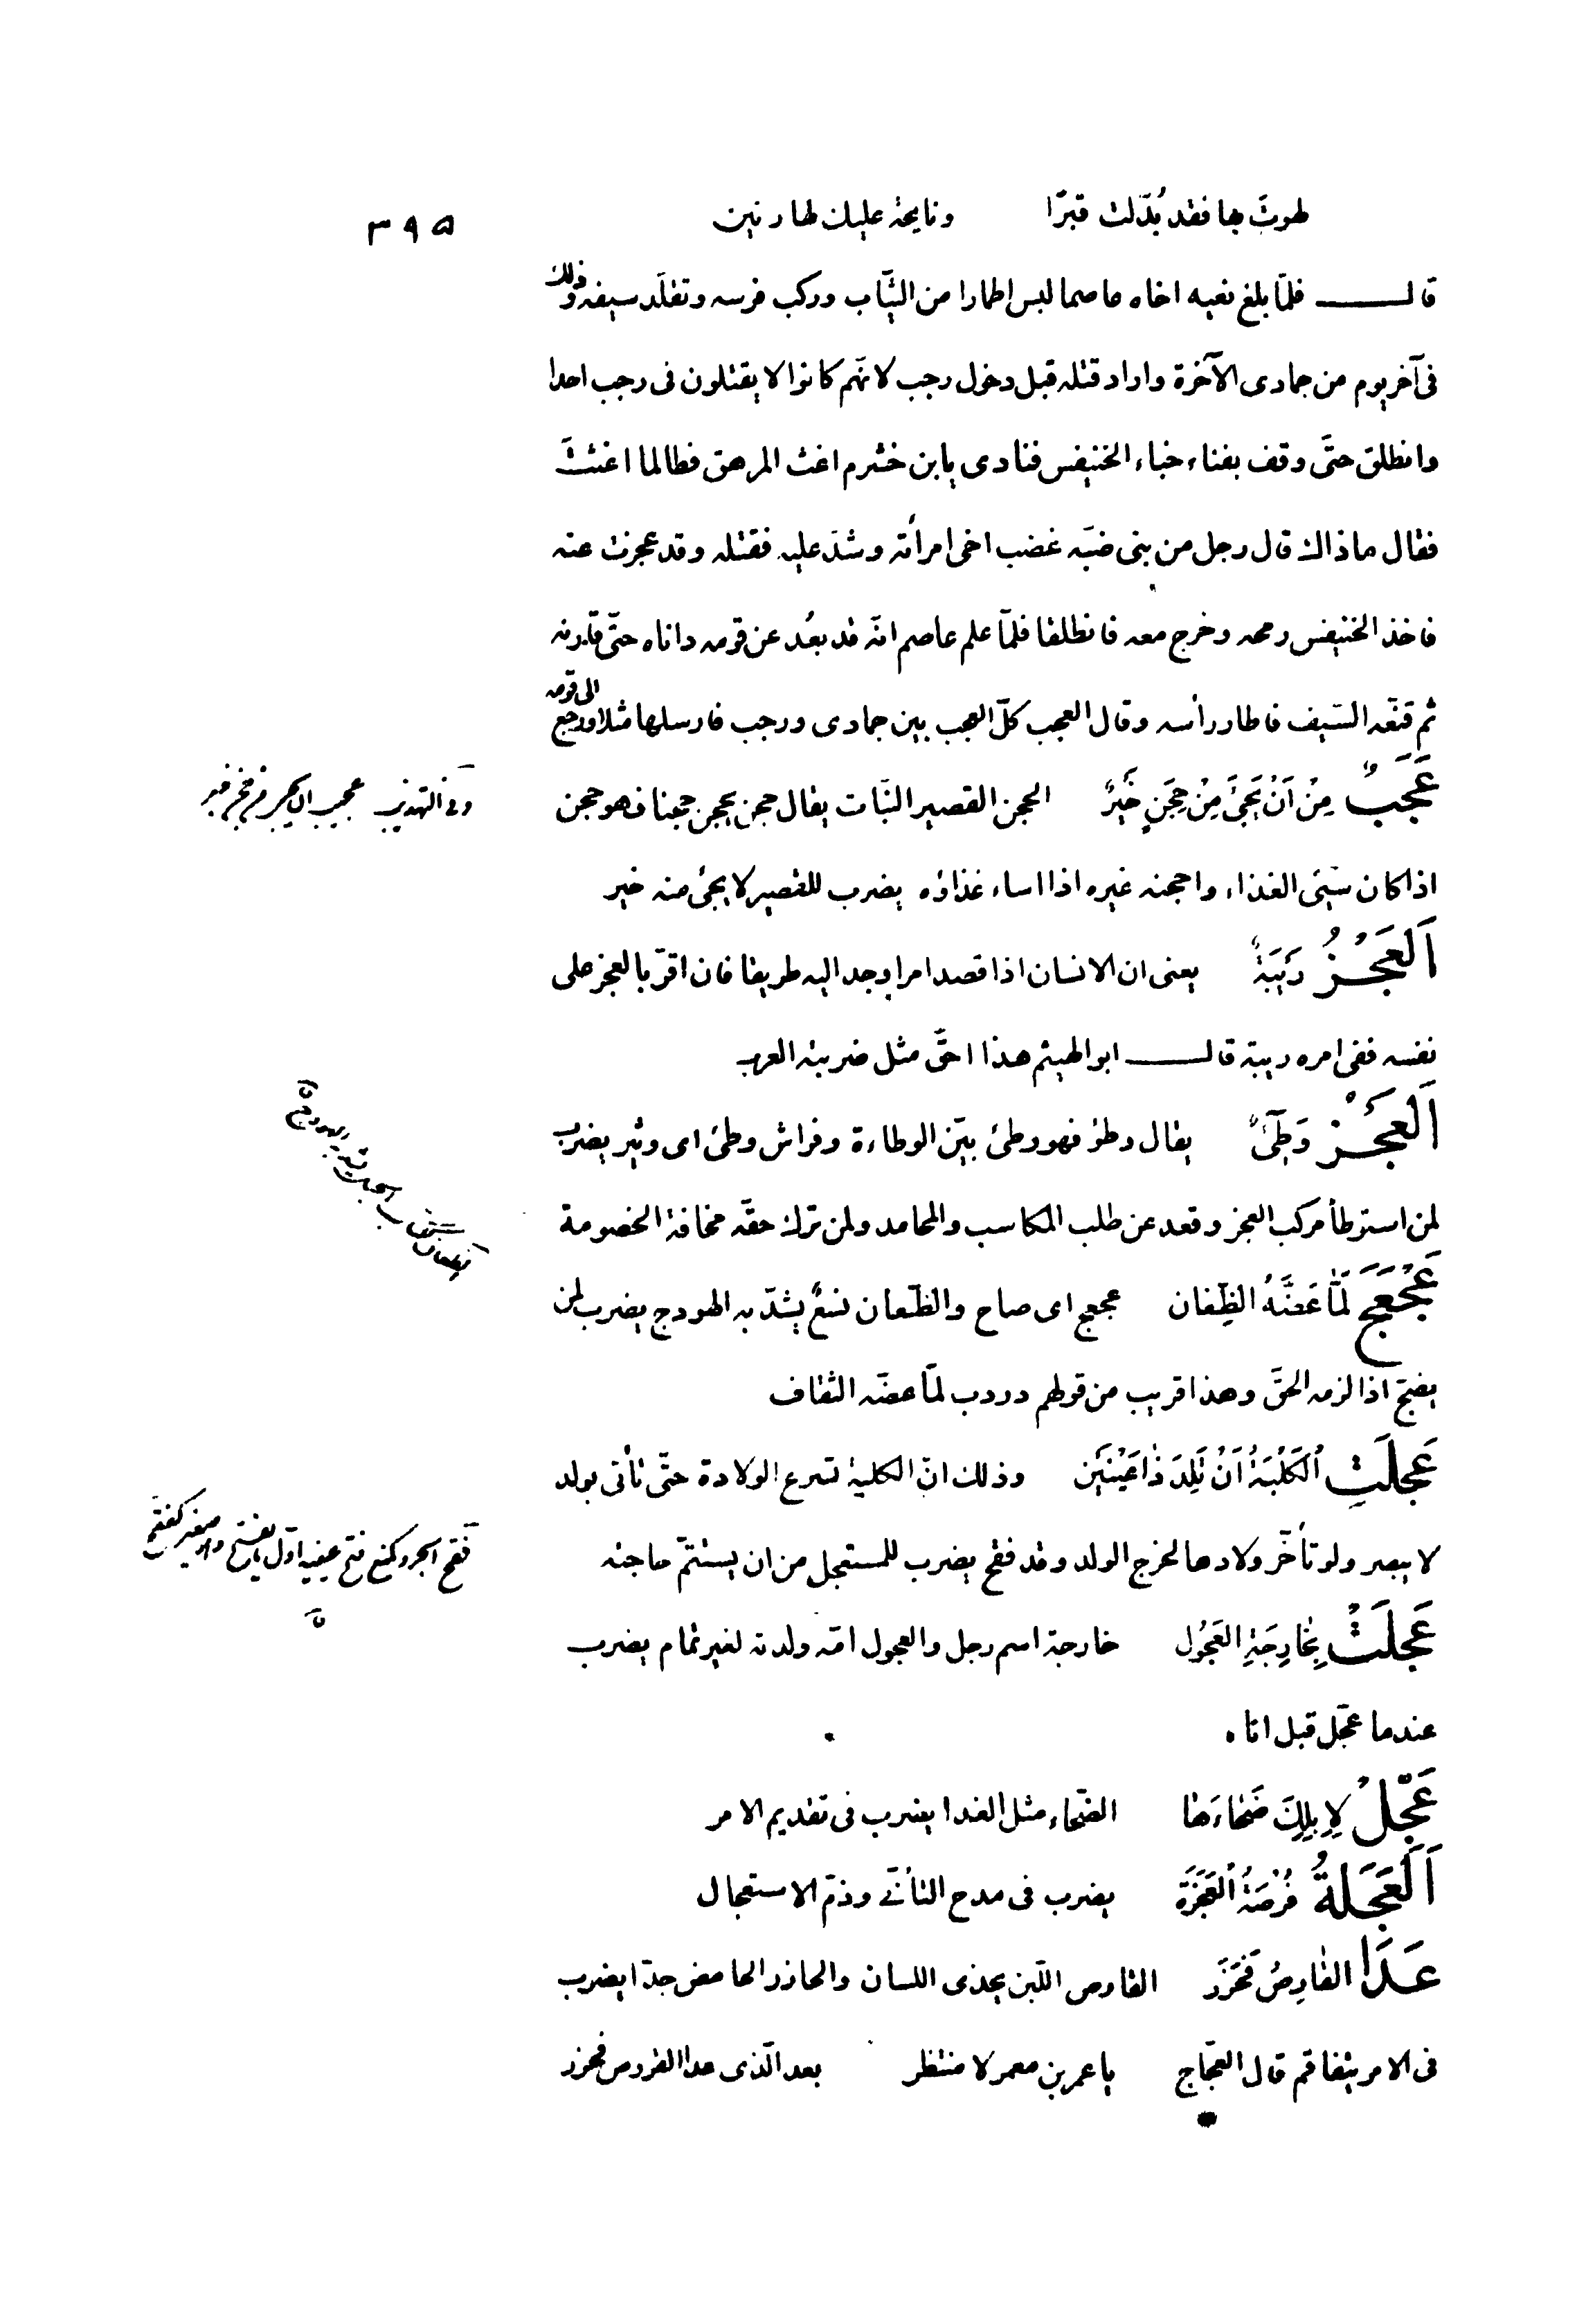 ۳۹۵
لهوتَ بها فقد بُدّلت قبرًا ونايحة عليك لها رنين
قال فلمّا بلغ نعيه اخاه عاصما لبس اطمارا من الثّياب وركب فرسه وتقلّد سيفه وذلك
فى آخر يوم من جمادى الآخرة واراد قتله قبل دخول رجب لانّهم كانوا لا يقتلون فى رجب احدا
وانطلق حتَّى وقف بفناء خباء الخنيفس فنادى يابن خشرم اغث المرهق فطالما اغثتَ
فقال ماذاك قال رجل من بنى ضبّه غضب اخى امرأته وشدّ عليه فقتله وقد عجزت عنه
فاخذ الخنيفس رمحه وخرج معه فانطلقا فلمّا علم عاصم انّه قد بعُد عن قومه داناه حتّى قارنه
ثم قنّعه السّيف فاطار رأسه وقال العجب كلّ العجب بين جمادى ورجب فارسلها مثلا ورجع الى قومه
عَجَبٌ مِنْ اَنْ يَجِىَٔ مِنْ حَجِنٍ خَيْرٌ الحجن القصير النّبات يقال حجن يحجن حجنا فهو حجن
وفى التهذيب عجيب ان يجىء من حجن خير
اذا كان سيّئ الغذاء واحجنه غيره اذا اساء غذاؤه يضرب للقصير لا يجئ منه خير
اَلعَجْزُ رَيْبَةٌ يعنى ان الانسان اذا قصد امرا وجد اليه طريقا فان اقرّ بالعجز على
نفسه ففى امره ريبة قال ابو الهيثم هذا احقّ مثل ضربته العرب
اَلعَجْز وَطِىٌٔ يقال وطؤ فهو وطئ بيّن الوطاءة وفراش وطئ اى وثير يضرب
لمن استوطأ مركب العجز وقعد عن طلب المكاسب والمحامد ولمن ترك حقّه مخافة الخصومة
عَجْعَجَ لَمَّا عَضَّهُ الظِّعَان عجعج اى صاح والظّعان نسعٌ يشدّ به الهودج يضرب لمن
يضجّ اذا لزمه الحقّ وهذا قريب من قولهم دردب لمّا عضّه الثقاف
عَجِلَتِ اَلكَلْبَةُ اَنْ تَلِدَ ذَا عَيْنَيْن وذلك انّ الكلبة تسرع الولادة حتّى تأتى بولد
لا يبصر ولو تأخّر ولادها لخرج الولد وقد فقح يضرب للمستعجل من ان يستتمّ حاجته
عَجِلَتْ بِخَارِجَةِ العَجُول خارجة اسم رجل والعجول امّه ولدته لغير تمام يضرب
عندما عجّل قبل اناه
عَجِّلْ لِاِبِلِكَ ضَحَاءَهَا الضّحاء مثل الغدا يضرب فى تقديم الامر
اَلعَجَلَةُ فُرْصَةُ اَلعَجَزَة يضرب فى مدح التأنّى وذمّ الاستعجال
عَدَا القَارِصُ فَحَزَر القارص اللّبن يحذى اللسان والحازر الحامض جدّا يضرب
فى الامر يتفاقم قال العجّاج يا عمر بن معمر لا منتظر بعد الّذى عدا القروص فحزر